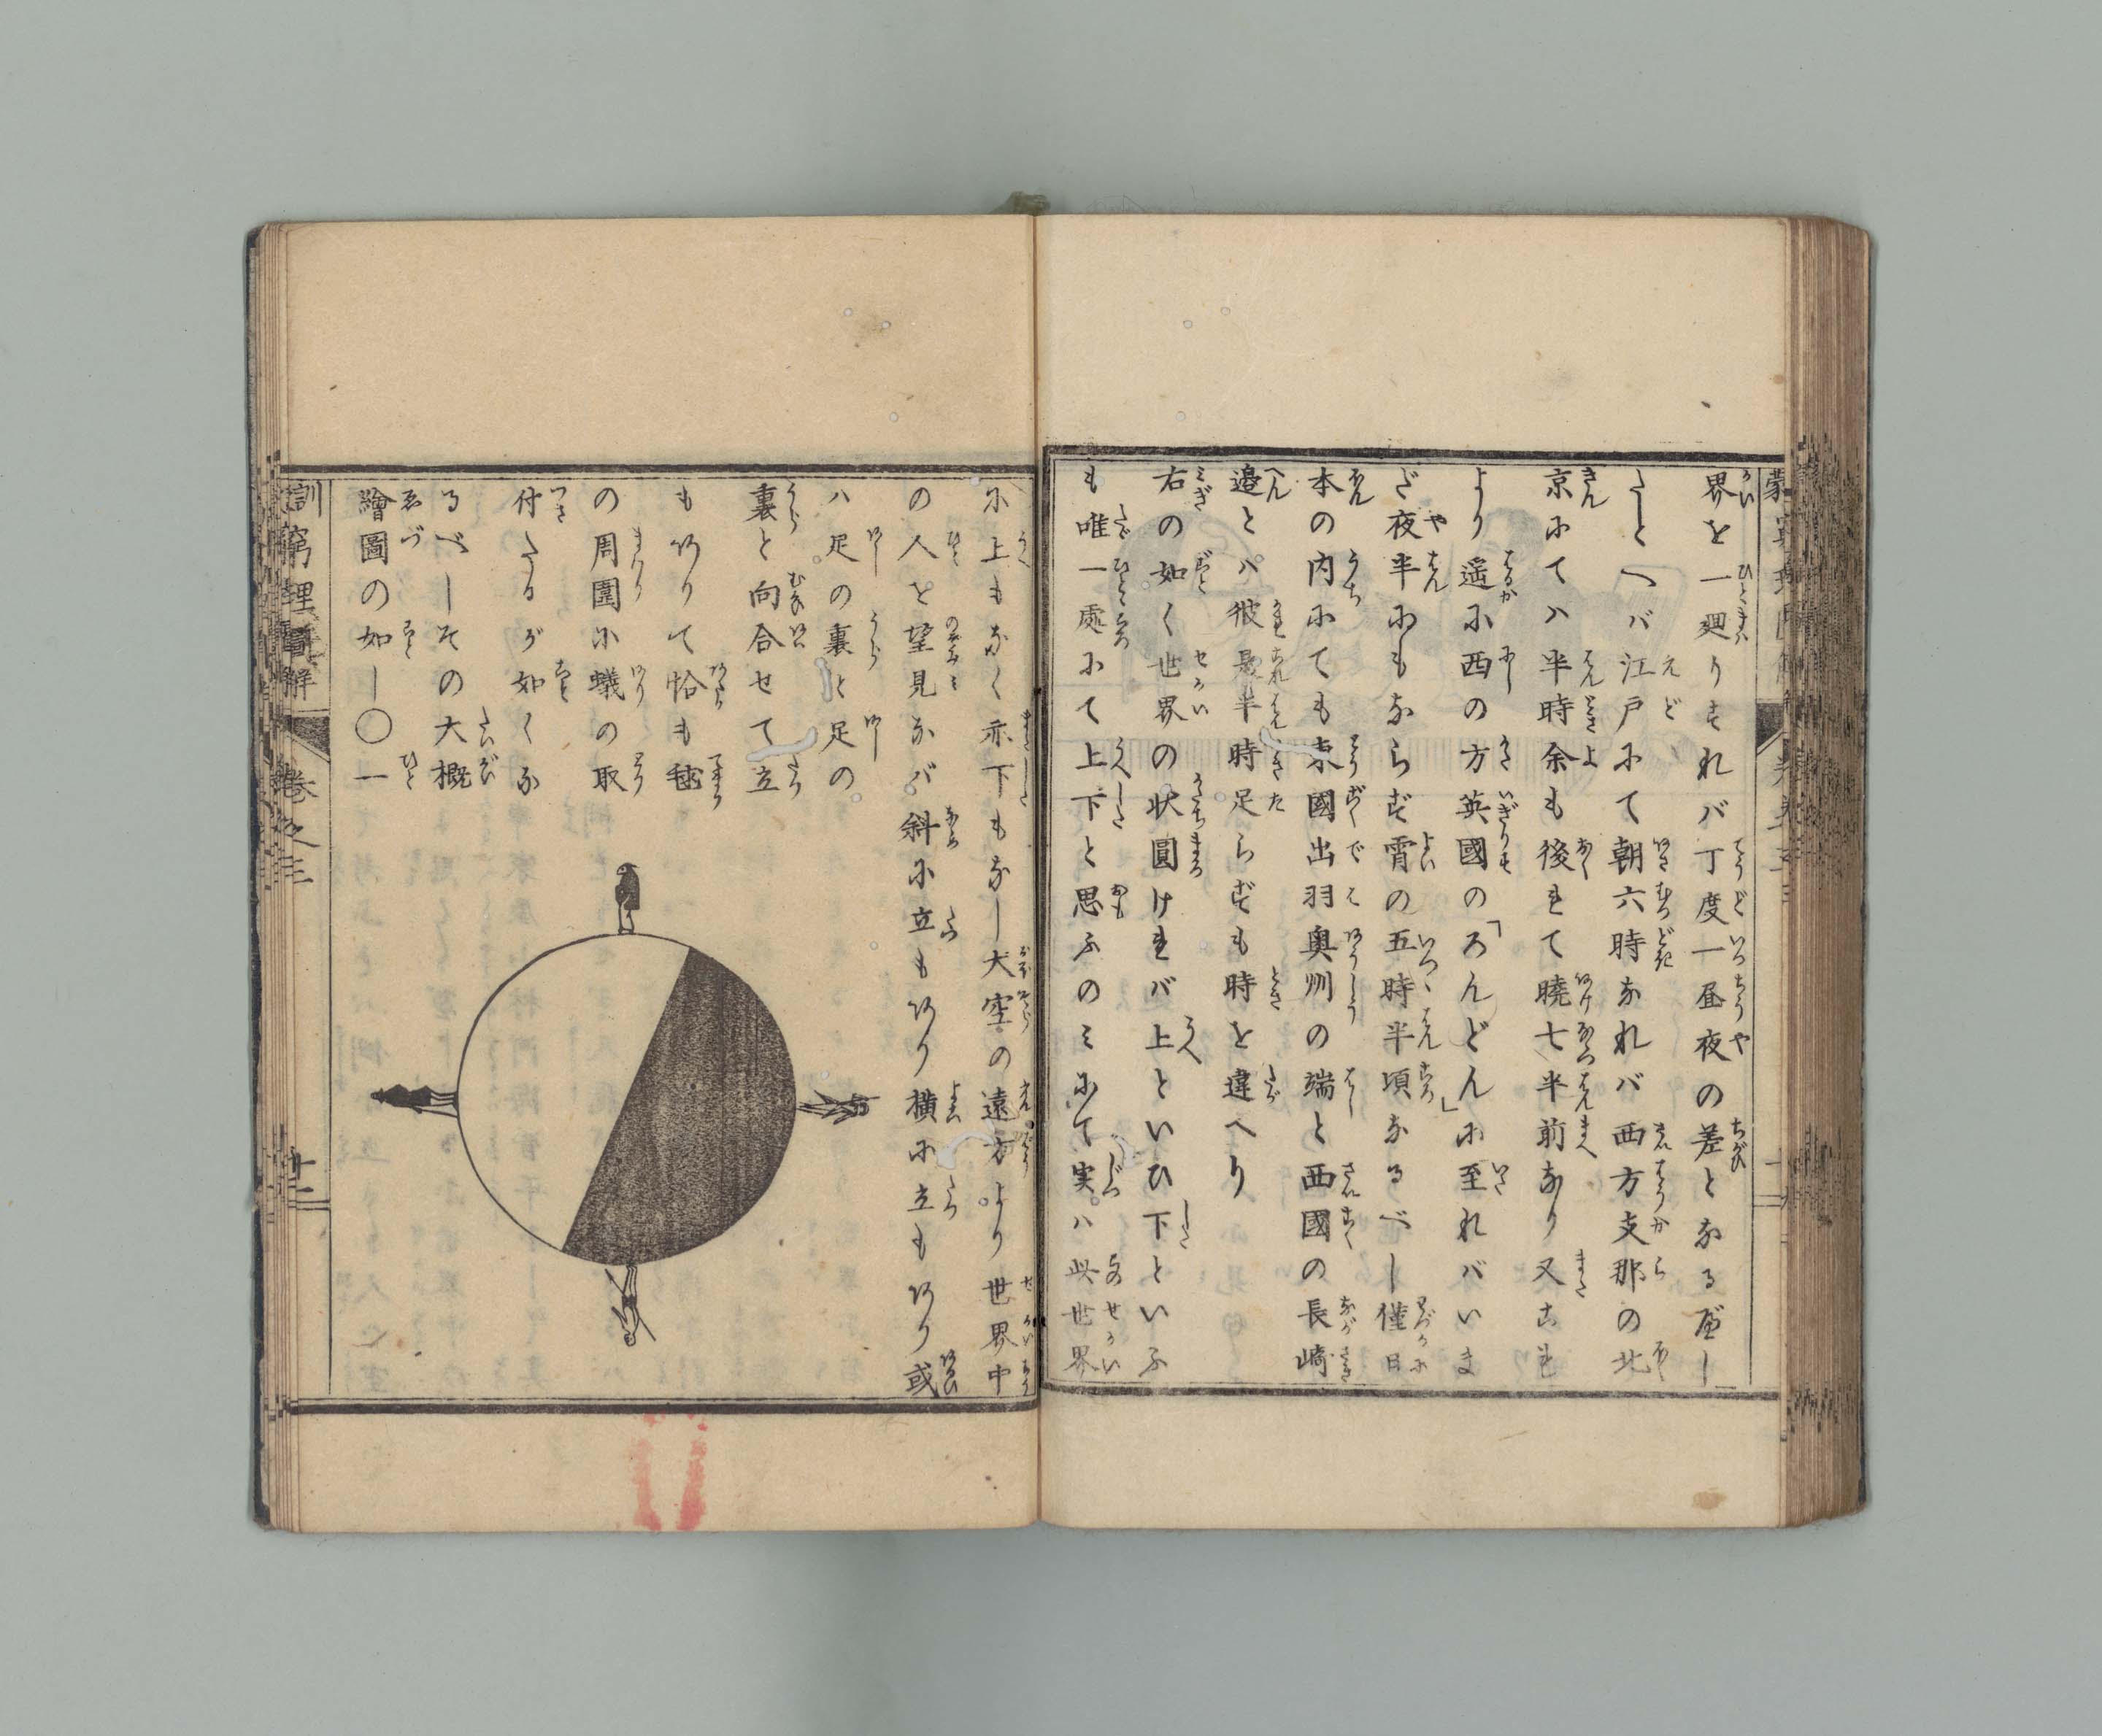 界を一廻りすれバ丁度一昼夜の差となるべし
たとへバ江戸にて朝六時なれバ西方支那の北
京にてハ半時余も後れて暁七半前なり又これ
より遥に西の方英國の「ろんどん」に至れバいま
だ夜半にもならず宵の五時半頃なるべし僅日
本の内にても東國出羽奥州の端と西國の長崎
邉とハ彼是半時足らずも時を違へり
右の如く世界の状圓けれバ上といひ下といふ
も唯一處にて上下と思ふのミにて実ハ此世界
に上もなく亦下もなし大空の遠方より世界中
の人を望見なバ斜に立もあり横に立もあり或
ハ足の裏と足の
裏と向合せて立
もありて恰も毬
の周圍に蟻の取
付たるが如くな
るべしその大概
繪圖の如し〇一
訓窮理圖解 巻之三 十一